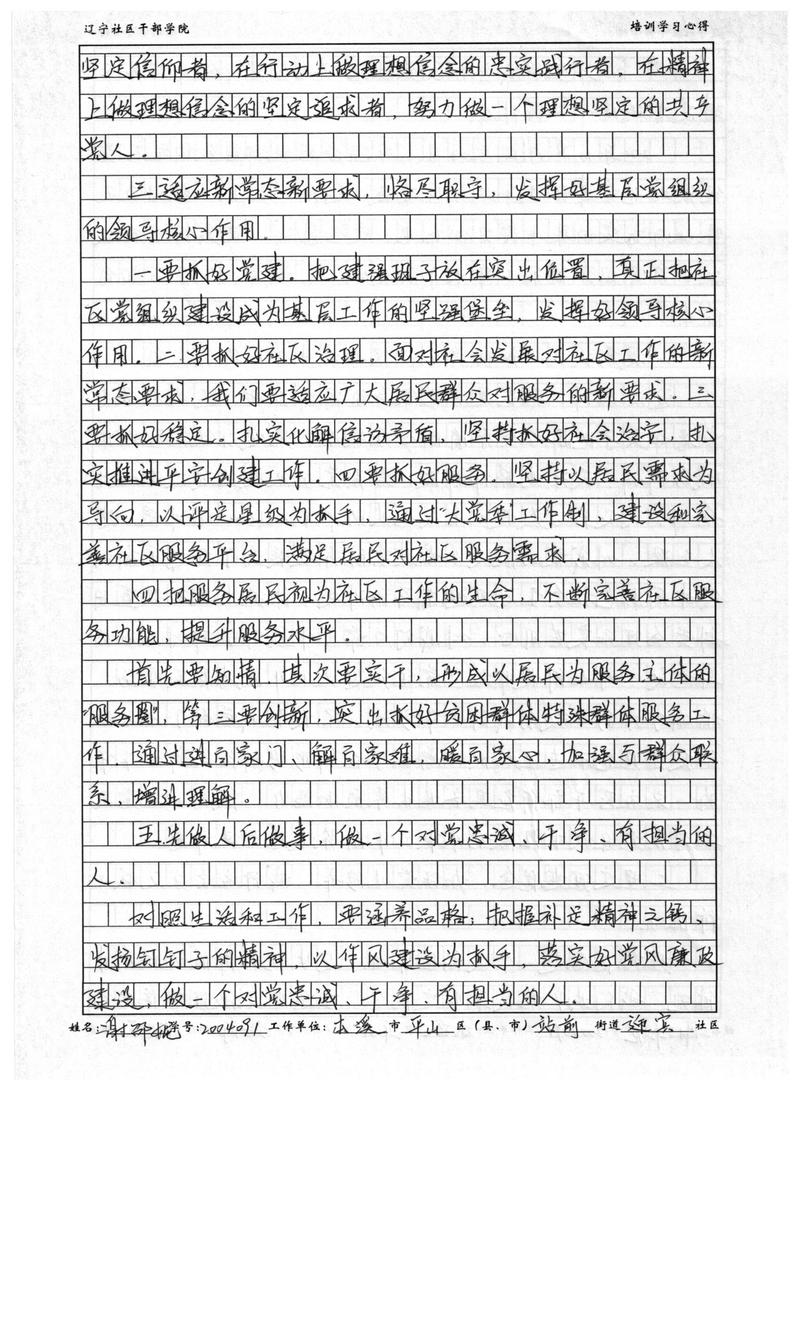 辽宁社区干部学院 培训学习心得
坚定信仰者，在行动上做理想信念的忠实践行者，在精神
上做理想信念的坚定追求者，努力做一个理想坚定的共产
党人。
三适应新常态新要求，恪尽职守，发挥好基层党组织
的领导核心作用。
一要抓好党建。把建强班子放在突出位置，真正把社
区党组织建设成为基层工作的坚强堡垒，发挥好领导核心
作用。二要抓好社区治理。面对社会发展对社区工作的新
常态要求，我们要适应广大居民群众对服务的新要求。三
要抓好稳定。扎实化解信访矛盾，坚持抓好社会治安，扎
实推进平安创建工作。四要抓好服务。坚持以居民需求为
导向，以评定星级为抓手，通过“大党委”工作制，建设和完
善社区服务平台，满足居民对社区服务需求。
四把服务居民视为社区工作的生命，不断完善社区服
务功能，提升服务水平。
首先要知精，其次要实干，形成以居民为服务主体的
“服务圈”，第三要创新，突出抓好贫困群体特殊群体服务工
作，通过进百家门、解百家难，暖百家心，加强与群众联
系，增进理解。
五先做人后做事，做一个对党忠诚、干净、有担当的
人。
对照生活和工作，要涵养品格；把握补足精神之钙、
发扬钉钉子的精神，以作风建设为抓手，落实好党风廉政
建设，做一个对党忠诚、干净、有担当的人。
姓名:谢 学号:2004091 工作单位:本溪 市 平山 区（县、市）站前 街道 迎宾 社区